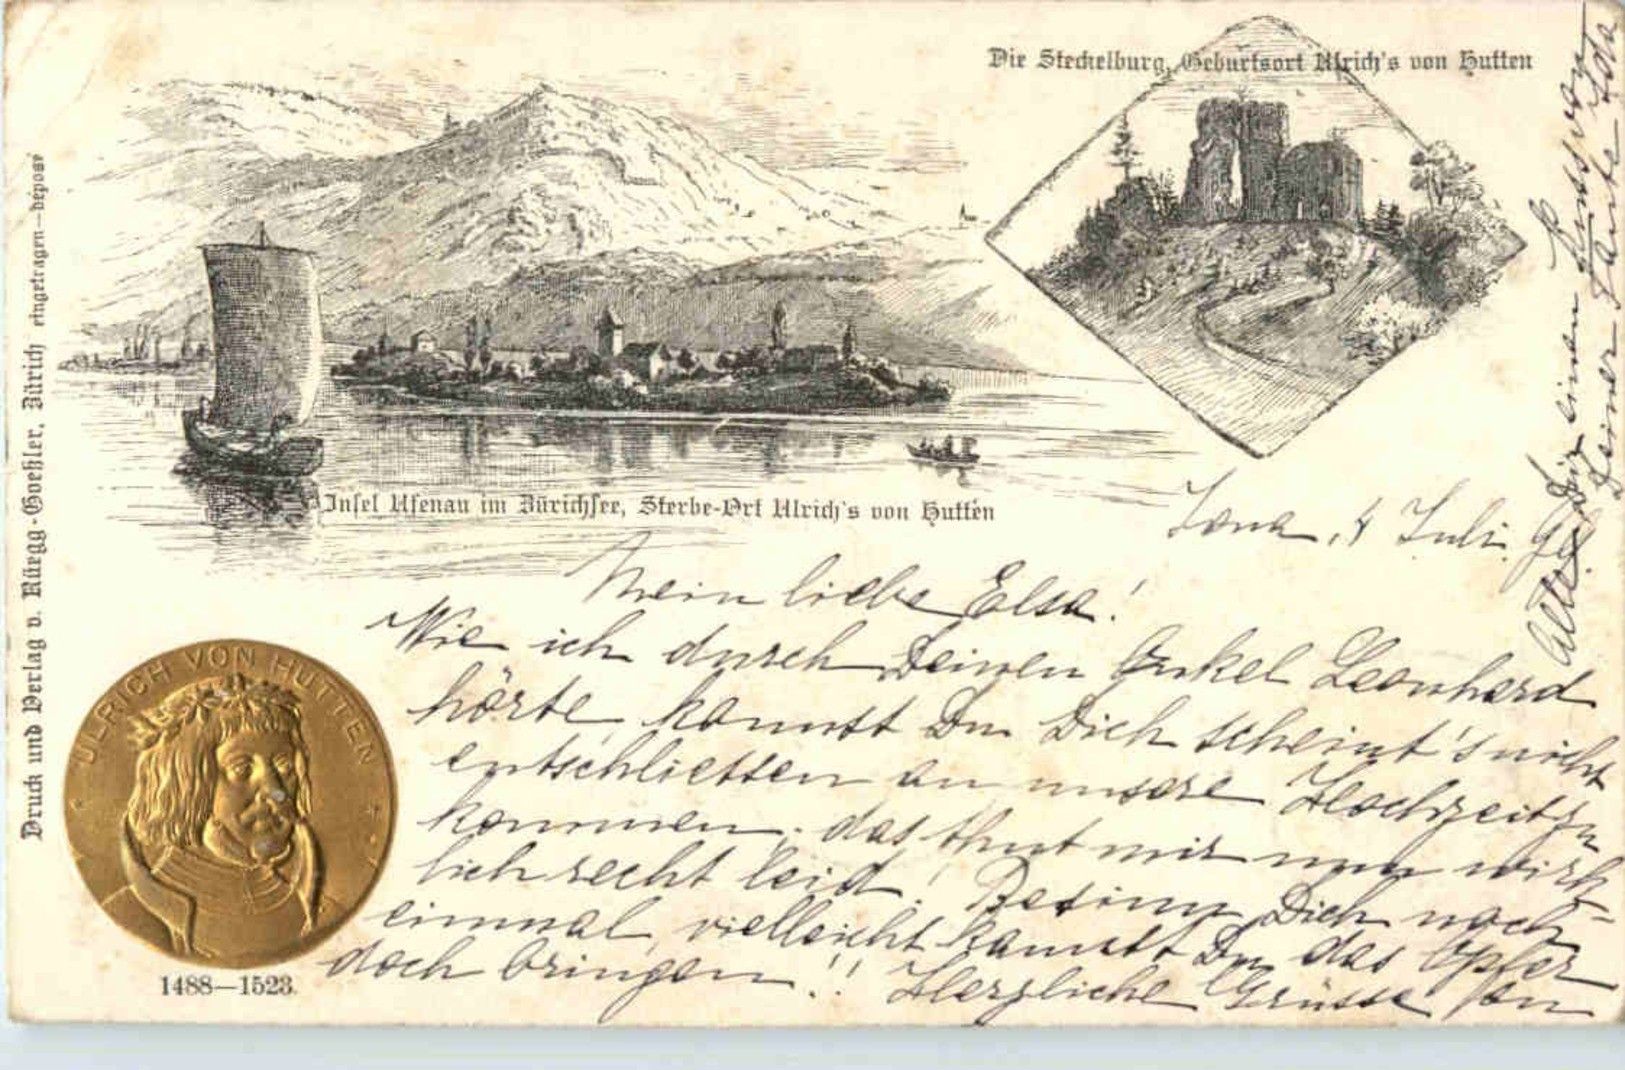 Die Steckelburg, Geburtsort Ulrich's von Hutten
Insel Ufenau im Zürichsee, Sterbe-Ort Ulrich's von Hutten
Druck und Verlag v. Rüegg-Goeßler, Zürich eingetragen—déposé
ULRICH VON HUTTEN
1488—1523.
Jona, 4 Juli
Mein liebe Elsa!
Wie ich durch Deinen Onkel Leonhard
hörte, kannst Du Dich scheint's nicht
entschliessen an unsere Hochzeit zu
kommen. das thut mir nun wirk-
lich recht leid! Besinn Dich noch
einmal, vielleicht kannst Du das Opfer
doch bringen!! Herzliche Grüsse an
Alle & Dir einen Kuss von
Deiner Tante Ida